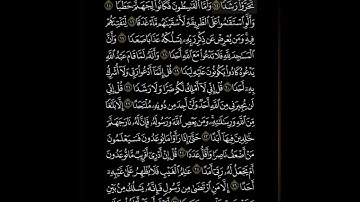 تَحَرَّوْا۟ رَشَدًا ۝١٤ وَأَمَّا ٱلْقَـٰسِطُونَ فَكَانُوا۟ لِجَهَنَّمَ حَطَبًا ۝١٥
وَأَلَّوِ ٱسْتَقَـٰمُوا۟ عَلَى ٱلطَّرِيقَةِ لَأَسْقَيْنَـٰهُم مَّآءً غَدَقًا ۝١٦ لِّنَفْتِنَهُمْ
فِيهِ وَمَن يُعْرِضْ عَن ذِكْرِ رَبِّهِۦ يَسْلُكْهُ عَذَابًا صَعَدًا ۝١٧ وَأَنَّ
ٱلْمَسَـٰجِدَ لِلَّهِ فَلَا تَدْعُوا۟ مَعَ ٱللَّهِ أَحَدًا ۝١٨ وَأَنَّهُۥ لَمَّا قَامَ عَبْدُ ٱللَّهِ
يَدْعُوهُ كَادُوا۟ يَكُونُونَ عَلَيْهِ لِبَدًا ۝١٩ قُلْ إِنَّمَآ أَدْعُوا۟ رَبِّى وَلَآ أُشْرِكُ
بِهِۦٓ أَحَدًا ۝٢٠ قُلْ إِنِّى لَآ أَمْلِكُ لَكُمْ ضَرًّا وَلَا رَشَدًا ۝٢١ قُلْ إِنِّى
لَن يُجِيرَنِى مِنَ ٱللَّهِ أَحَدٌ وَلَنْ أَجِدَ مِن دُونِهِۦ مُلْتَحَدًا ۝٢٢ إِلَّا بَلَـٰغًا
مِّنَ ٱللَّهِ وَرِسَـٰلَـٰتِهِۦ وَمَن يَعْصِ ٱللَّهَ وَرَسُولَهُۥ فَإِنَّ لَهُۥ نَارَ جَهَنَّمَ
خَـٰلِدِينَ فِيهَآ أَبَدًا ۝٢٣ حَتَّىٰٓ إِذَا رَأَوْا۟ مَا يُوعَدُونَ فَسَيَعْلَمُونَ
مَنْ أَضْعَفُ نَاصِرًا وَأَقَلُّ عَدَدًا ۝٢٤ قُلْ إِنْ أَدْرِىٓ أَقَرِيبٌ مَّا تُوعَدُونَ
أَمْ يَجْعَلُ لَهُۥ رَبِّىٓ أَمَدًا ۝٢٥ عَـٰلِمُ ٱلْغَيْبِ فَلَا يُظْهِرُ عَلَىٰ غَيْبِهِۦٓ
أَحَدًا ۝٢٦ إِلَّا مَنِ ٱرْتَضَىٰ مِن رَّسُولٍ فَإِنَّهُۥ يَسْلُكُ مِنۢ بَيْنِ